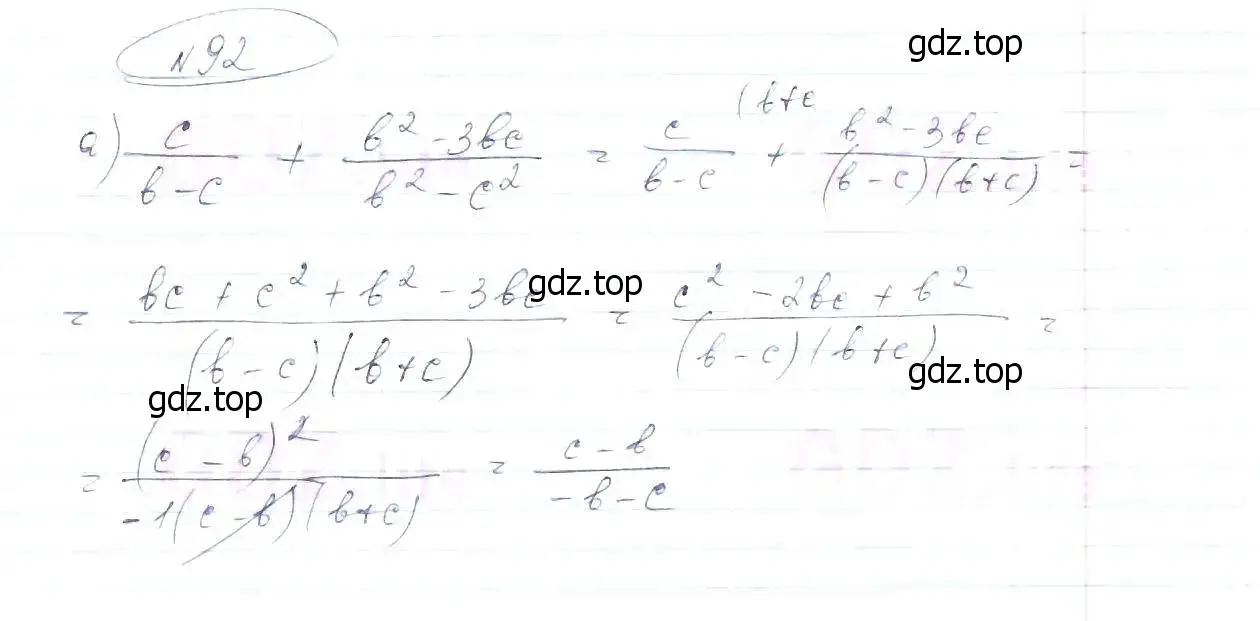 №92
gdz.top
а) c/(b-c) + (b²-3bc)/(b²-c²) = c/(b-c) (b+c + (b²-3bc)/((b-c)(b+c)) =
= (bc+c²+b²-3bc)/((b-c)(b+c)) = (c²-2bc+b²)/((b-c)(b+c)) =
gdz.top
gdz.top
gdz.top
= (c-b)²/(-1(c-b)(b+c)) = (c-b)/(-b-c)